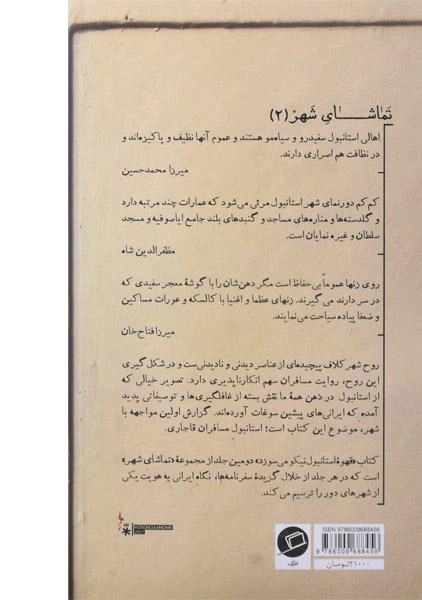 تماشـــای شهر (۲)
اهالی استانبول سفیدرو و سیاه‌مو هستند و عموم آنها نظیف و پاکیزه‌اند و
در نظافت هم اصراری دارند.
میرزا محمدحسین
کم‌کم دورنمای شهر استانبول مرئی می‌شود که عمارات چند مرتبه دارد
و گلدسته‌ها و مناره‌های مساجد و گنبدهای بلند جامع ایاصوفیه و مسجد
سلطان و غیره نمایان است.
مظفرالدین شاه
روی زنها عموماً بی‌حفاظ است مگر دهن‌شان را با گوشهٔ معجر سفیدی که
در سر دارند می‌گیرند. زنهای عظما و اغنیا با کالسکه و عورات مساکین و
ضعفا پیاده سیاحت می‌نمایند.
میرزا فتاح‌خان
روح شهر کلاف پیچیده‌ای از عناصر دیدنی و نادیدنی‌ست و در شکل‌گیری
این روح، روایت مسافران سهم انکارناپذیری دارد. تصویر خیالی که
از استانبول در ذهن همهٔ ما نقش بسته از غافلگیری‌ها و توصیفاتی پدید
آمده که ایرانی‌های پیشین سوغات آورده‌اند. گزارش اولین مواجهه با
شهر، موضوع این کتاب است؛ استانبول مسافران قاجاری.
کتاب «قهوهٔ استانبول نیکو می‌سوزد» دومین جلد از مجموعهٔ «تماشای شهر»
است که در هر جلد از خلال گزیدهٔ سفرنامه‌ها، نگاه ایرانی به هویت یکی
از شهرهای دور را ترسیم می‌کند.
ISBN 9786009688456
9 786009 688456
۲۱۰۰۰ تومان
اطراف